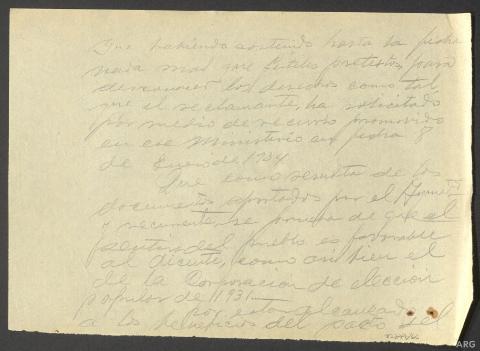 Que habiendo sostenido hasta la fecha
nada mas que fútiles pretestos, para
desconocer los derechos como tal
que el reclamante, ha solicitado
por medio de recurso promovido
en ese Ministerio en fecha 8
de Enero de 1934
Que como resulta de los
documentos aportados por el
y recurrente, se prueba de que el
sentir del pueblo es favorable
al dicente, como asi bien el
de la Corporacion de eleccion
popular de 1931
por estar alcanzado
a los beneficios del
ARG